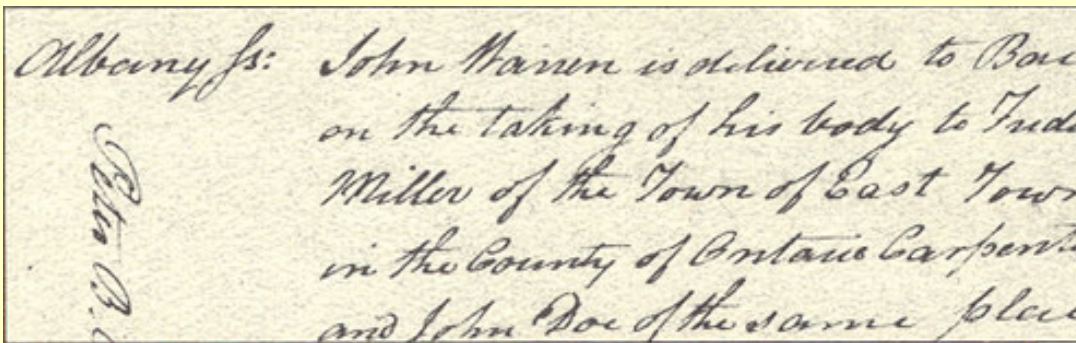 Albany ss: John Warren is delivered to Bai
on the taking of his body to Fred
Miller of the Town of East Town
in the County of Ontario Carpent
and John Doe of the same plac
Peter B.